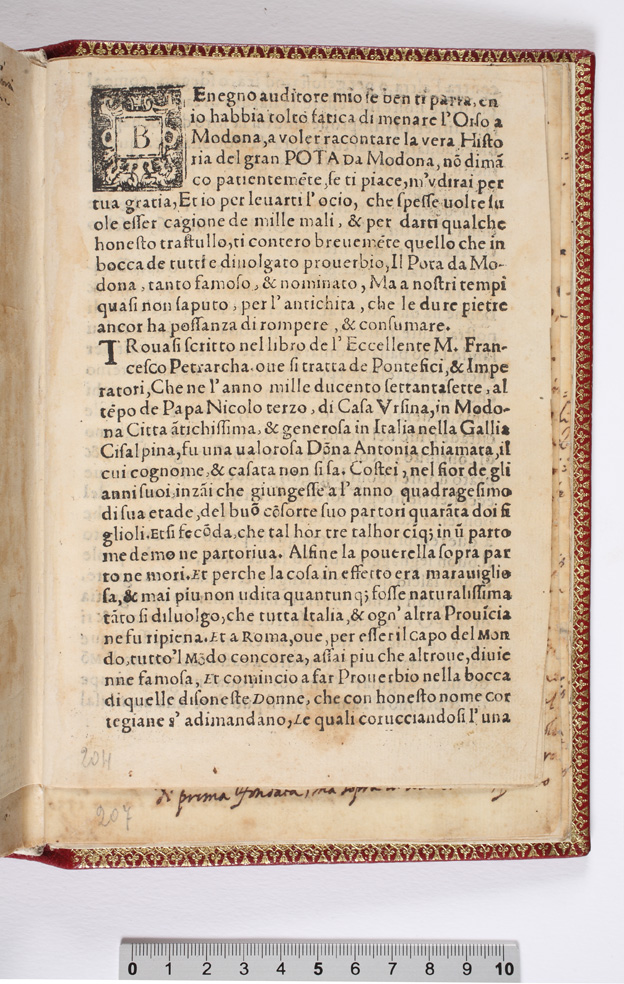 BEnegno auditore mio se ben ti parra, ch
io habbia tolto fatica di menare l'Orso a
Modona, a voler racontare la vera Histo
ria del gran POTA DA Modona, nõ dimã
co patientemẽte, se ti piace, m'vdirai per
tua gratia, Et io per leuarti l'ocio, che spesse uolte su
ole esser cagione de mille mali, & per darti qualche
honesto trastullo, ti contero breuemẽte quello che in
bocca de tutti e diuolgato prouerbio, Il Pota da Mo-
dona, tanto famoso, & nominato, Ma a nostri tempi
quasi non saputo, per l'antichita, che le dure pietre
ancor ha possanza di rompere, & consumare.
TRouasi scritto nel libro de l'Eccellente M. Fran-
cesco Petrarcha. oue si tratta de Pontefici, & Impe
ratori, Che ne l'anno mille ducento settantasette, al
tẽpo de Papa Nicolo terzo, di Casa Vrsina, in Modo-
na Citta ãtichissima, & generosa in Italia nella Gallia
Cisalpina, fu una ualorosa Dõna Antonia chiamata, il
cui cognome, & casata non si sa. Costei, nel fior de gli
anni suoi, inzãi che giungesse a l'anno quadragesimo
di sua etade, del buõ cẽsorte suo partori quarãta doi fi
glioli. Etsi fecõda, che tal hor tre talhor ciq; in ũ parto
medemo ne partoriua. Alfine la pouerella sopra par
to ne mori. Et perche la cosa in effetto era marauiglio
sa, & mai piu non udita quantunq; fosse naturalissima
tãto si diluolgo, che tutta Italia, & ogn'altra Prouĩcia
ne fu ripiena. Et a Roma, oue, per esser il capo del Mon
do, tutto'l Mõdo concorea, assai piu che altroue, diuie
nne famosa, Et comincio a far Prouerbio nella bocca
di quelle disoneste Donne, che con honesto nome cor
tegiane s'adimandano, Le quali corucciandosi l'una
204
di prima
207
0 1 2 3 4 5 6 7 8 9 10